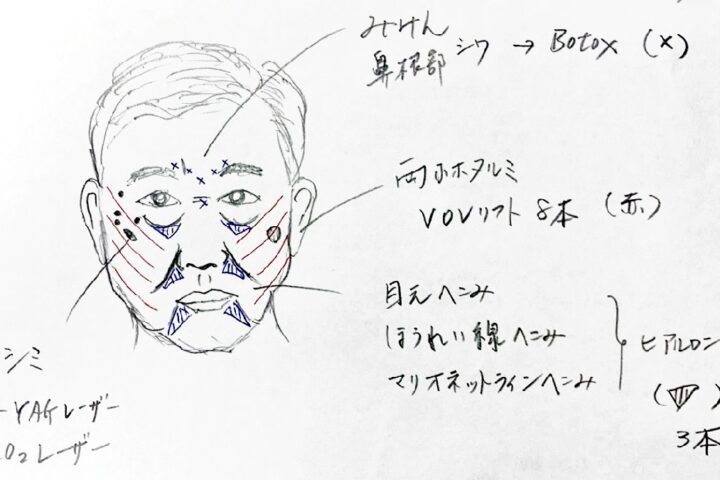 みけん
鼻根部
シワ → Botox (×)
両ホホタルミ
VOVリフト 8本 (赤)
目元ヘこみ
ほうれい線ヘこみ
マリオネットラインヘこみ
ヒアルロン
3本
シミ
YAGレーザー
O₂レーザー